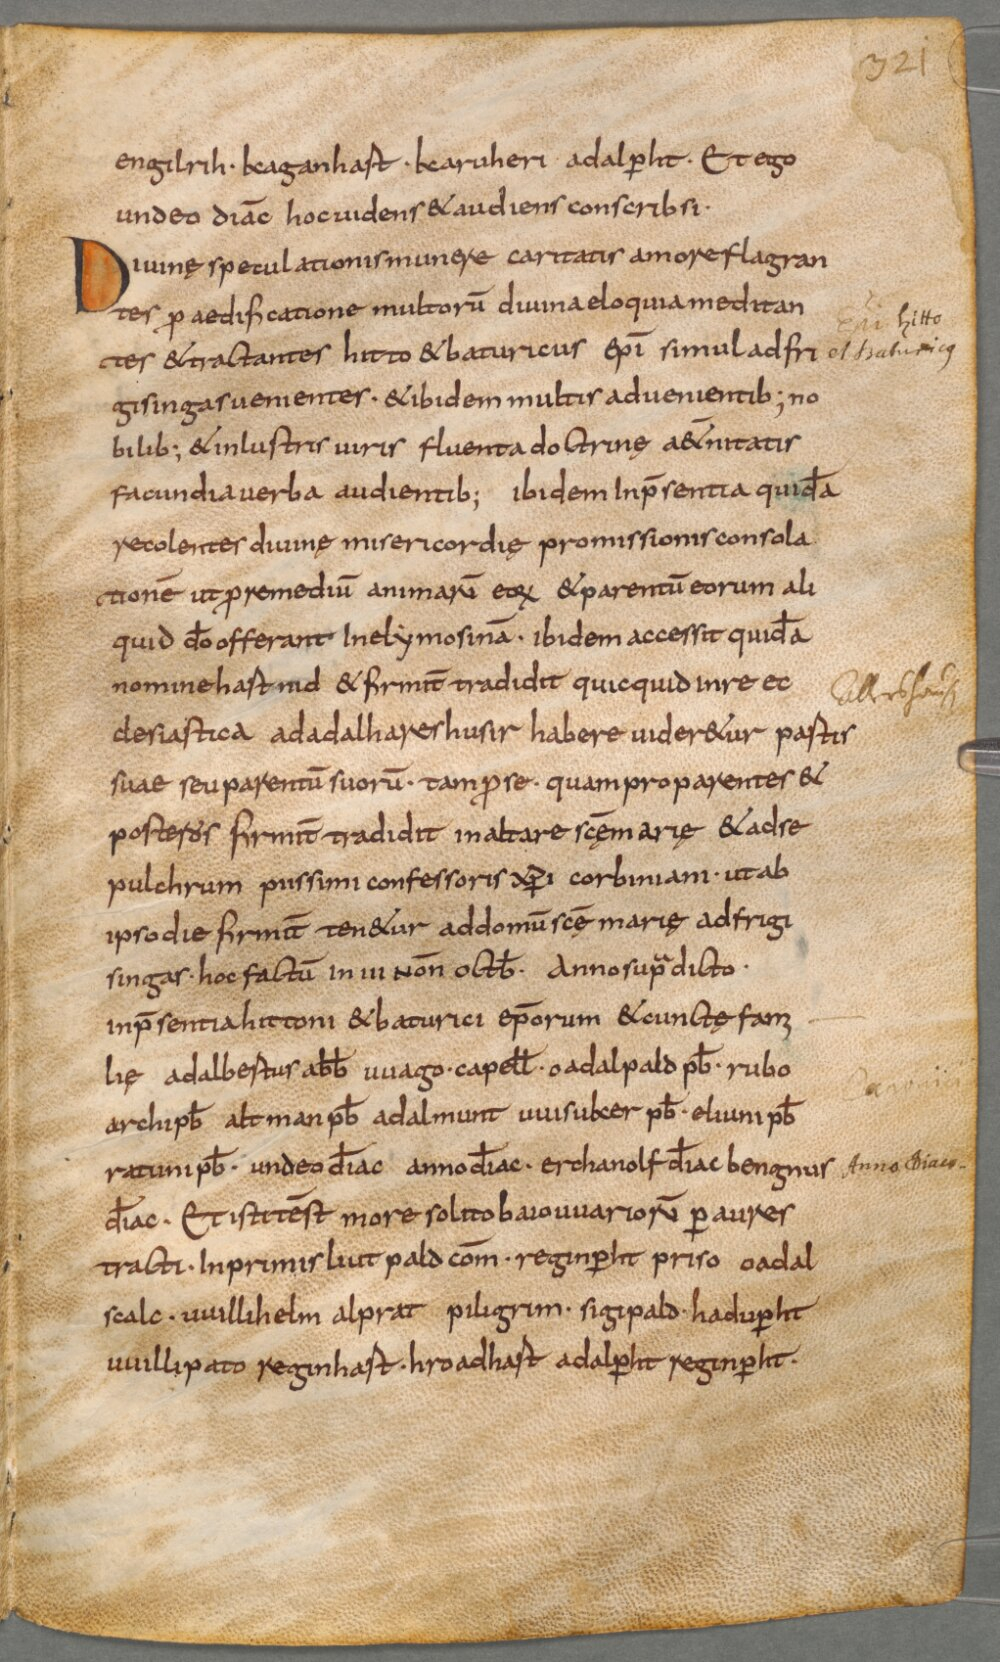 321
engilrih · kaganhast · kearuheri adalp̄ht · Et ego
undeo diac̄ hoc uidens & audiens conscribsi ·
Diuinę speculationis munere caritatis amore flagran
tes ꝓ aedificatione multorū diuina eloquia meditan
tes & tractantes hitto & baturicus ep̄i simul ad fri
Epi hitto
et Baturicꝰ
gisingas uenientes · & ibidem multis aduenientib; no
bilib; & inlustris uiris fluenta doctrinę a&nitatis
facundia uerba audientib; ibidem In p̄sentia quida̅
recolentes diuinę misericordię promissionis consola
tionē ut ꝓ remediū animarū eoꝝ & parentū eorum ali
quid do̅ offerant In elymosinā · ibidem accessit quida̅
nomine hastnid & firmit̄ tradidit quicquid in re ec
clesiastica ad adalhareshusir habere uider&ur pastis
suae seu parentū suorū · tam ꝓ se · quam pro parentes &
posteros firmit̄ tradidit in altare scę̄ marię & ad se
pulchrum piissimi confessoris xp̄i corbiniani · ut ab
ipso die firmit̄ ten&ur ad domū scę̄ marię ad frigi
singas · hoc factū in iii nōn octb̄ · Anno sup̄dicto ·
in p̄sentia hittoni & baturici ep̄orum & cunctę fami
lię adalbestus abb̄ uuago · capell̄ · oadalpald pb̄ · rubo
archipb̄ altman pb̄ adalmunt uuisukeer pb̄ · eliuni pb̄
ratuni pb̄ · undeo d̄iac anno d̄iac · erchanolf d̄iac bengnus
Anno Diaco-
d̄iac · Et isti tēst more solito baiouuariorū ꝑ aures
tracti · In primis liutpald cōm · reginp̄ht priso oadal
scalc · uuillihelm alprat piligrim · sigipald · hadup̄ht
uuillipato reginhast · hroadhast adalp̄ht reginp̄ht ·